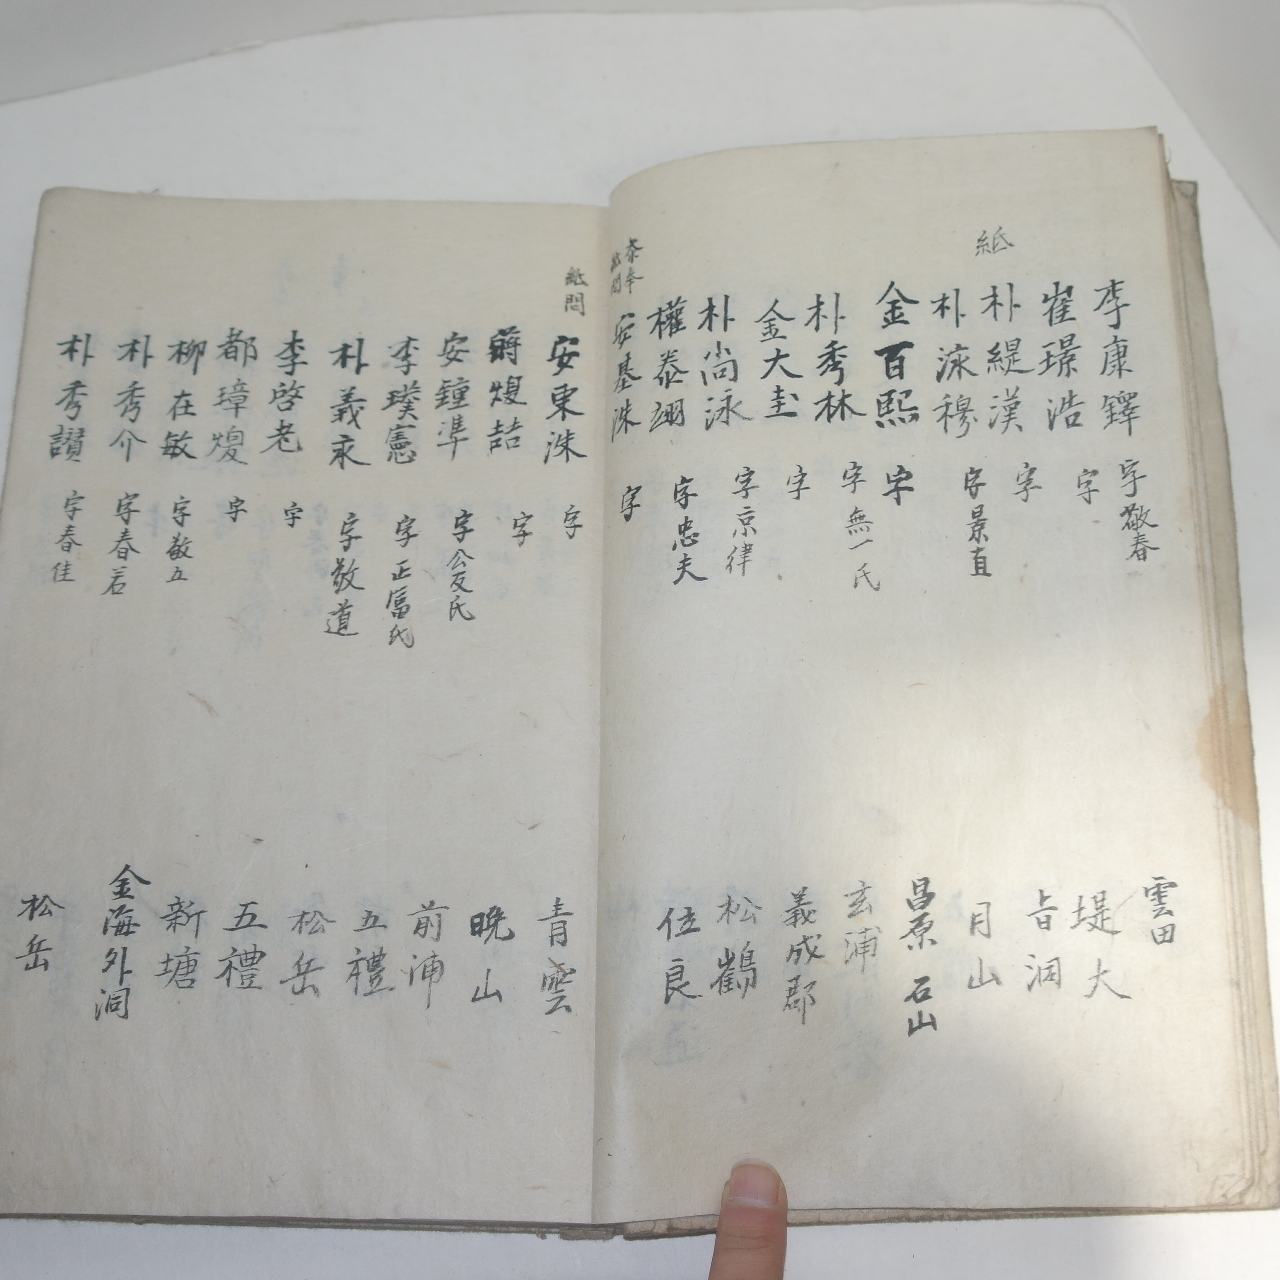 李康鐸 字敬春 雲田
崔璟浩 字 堤大
紙 朴緹漢 字 旨洞
朴泳穆 字景直 月山
金百熙 字 昌原 石山
朴秀林 字無一氏 玄浦
金大圭 字 義成郡
朴尚泳 字京律 松鶴
權泰翊 字忠夫 位良
泰奉
紙問 安基洙 字
紙問 安東洙 字 青雲
蔣煜喆 字 晩山
安鍾準 字公友氏 前浦
李璞憲 字正富氏 五禮
朴義永 字敬道 松岳
李啓老 字 五禮
都璋煥 字 新塘
柳在敏 字敬五
朴秀介 字春若 金海外洞
朴秀讃 字春佳 松岳